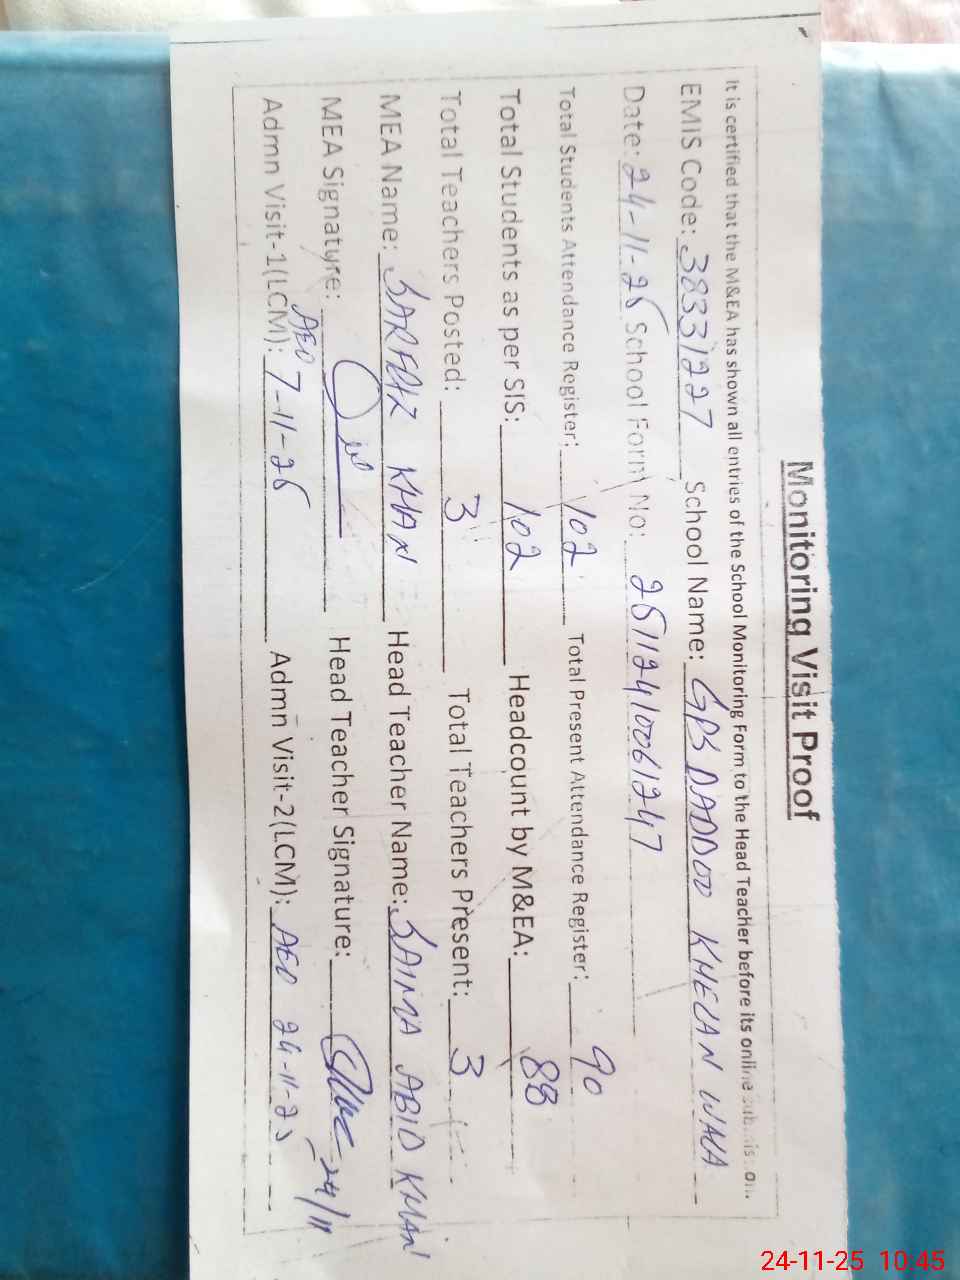 Monitoring Visit Proof
It is certified that the M&EA has shown all entries of the School Monitoring Form to the Head Teacher before its online submission.
EMIS Code: 38331227 School Name: GPS DADDOO KHELAN WALA
Date: 24-11-25 School Form No: 25112410061247
Total Students Attendance Register: 102 Total Present Attendance Register: 90
Total Students as per SIS: 102 Headcount by M&EA: 88
Total Teachers Posted: 3 Total Teachers Present: 3
MEA Name: SARFRAZ KHAN Head Teacher Name: SAIMA ABID KHAN
MEA Signature: Head Teacher Signature: 24/11
Admn Visit-1(LCM): AEO 7-11-25 Admn Visit-2(LCM): AEO 24-11-25
24-11-25 10:45